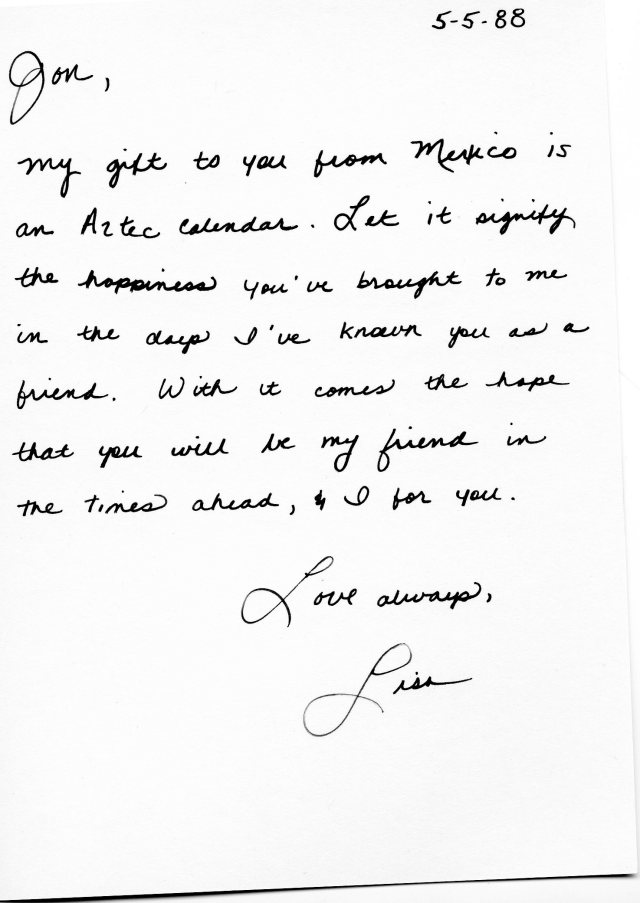 5-5-88
Jon,
My gift to you from Mexico is
an Aztec calendar. Let it signify
the happiness you've brought to me
in the days I've known you as a
friend. With it comes the hope
that you will be my friend in
the times ahead, & I for you.
Love always,
Lisa